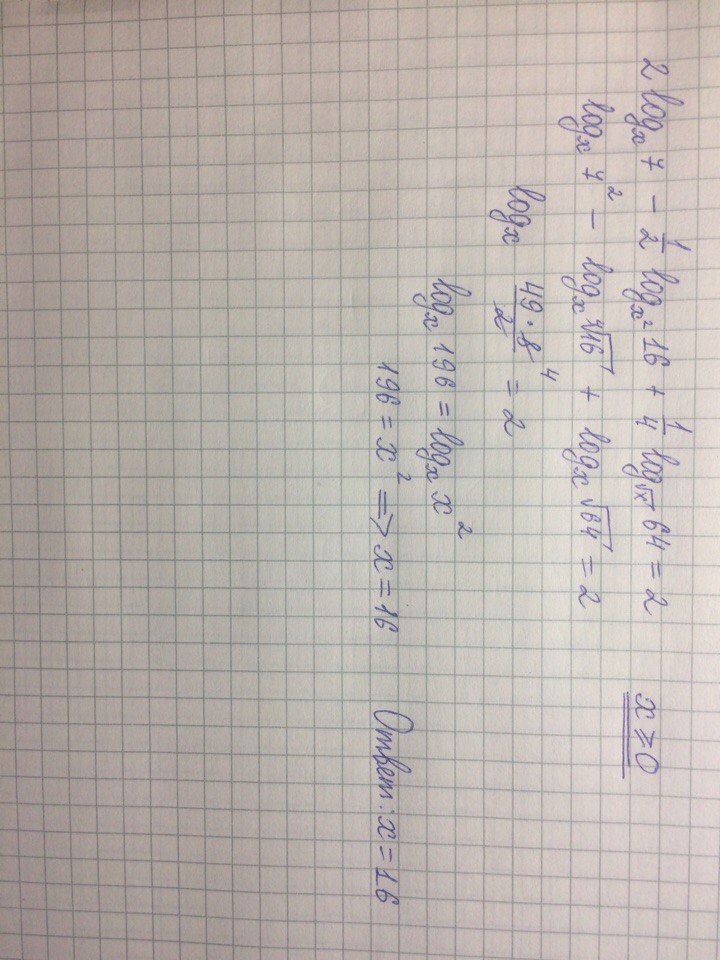 2 logₓ 7 − 1/2 logₓ² 16 + 1/4 log√x 64 = 2 x ⩾ 0
logₓ 7² − logₓ ⁴√16 + logₓ √64 = 2
logₓ 49 · 8 4 / 2 = 2
logₓ 196 = logₓ x²
196 = x² => x = 16 Ответ: x = 16